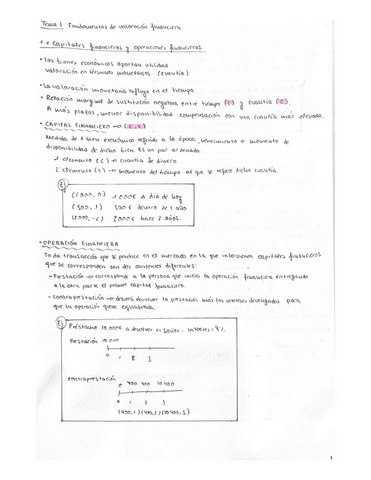 Tema 1: Fundamentos de valoración financiera.
1.1 Capitales financieros y operaciones financieras.
• Los bienes económicos aportan utilidad
valoración en términos monetarios (cuantía)
• La valoración monetaria influye en el tiempo.
- Relación marginal de sustitución negativa entre tiempo (t) y cuantía (C).
A más plazos, menor disponibilidad compensación con una cuantía más elevada.
• CAPITAL FINANCIERO → (C, t)
Medida de 1 bien económico referido a la época, vencimiento o momento de
disponibilidad de dicho bien. Es un par ordenado.
1 elemento (C) → cuantía de dinero.
2 elemento (t) → momento del tiempo al que se refiere dicha cuantía.
Ej
(1000, 0) 1000€ a día de hoy
(500, 1) 500€ dentro de 1 año
(2000, -2) 2000€ hace 2 años.
• OPERACIÓN FINANCIERA
Toda transacción que se produce en el mercado en la que intervienen capitales financieros
que se corresponden con dos corrientes diferentes:
- Prestación → corresponde a la persona que inicia la operación financiera entregando
a la otra parte el primer capital financiero.
- Contraprestación → deberá devolver la prestación más los intereses devengados para
que la operación quede equilibrada.
Ej
Préstamo 10.000€ a devolver en 3 años. Intereses: 4%.
Prestación 10.000
0 1 2 3
contraprestación
0 400 400 10.400
0 1 2 3
(400,1) (400,2) (10.400,3)
1